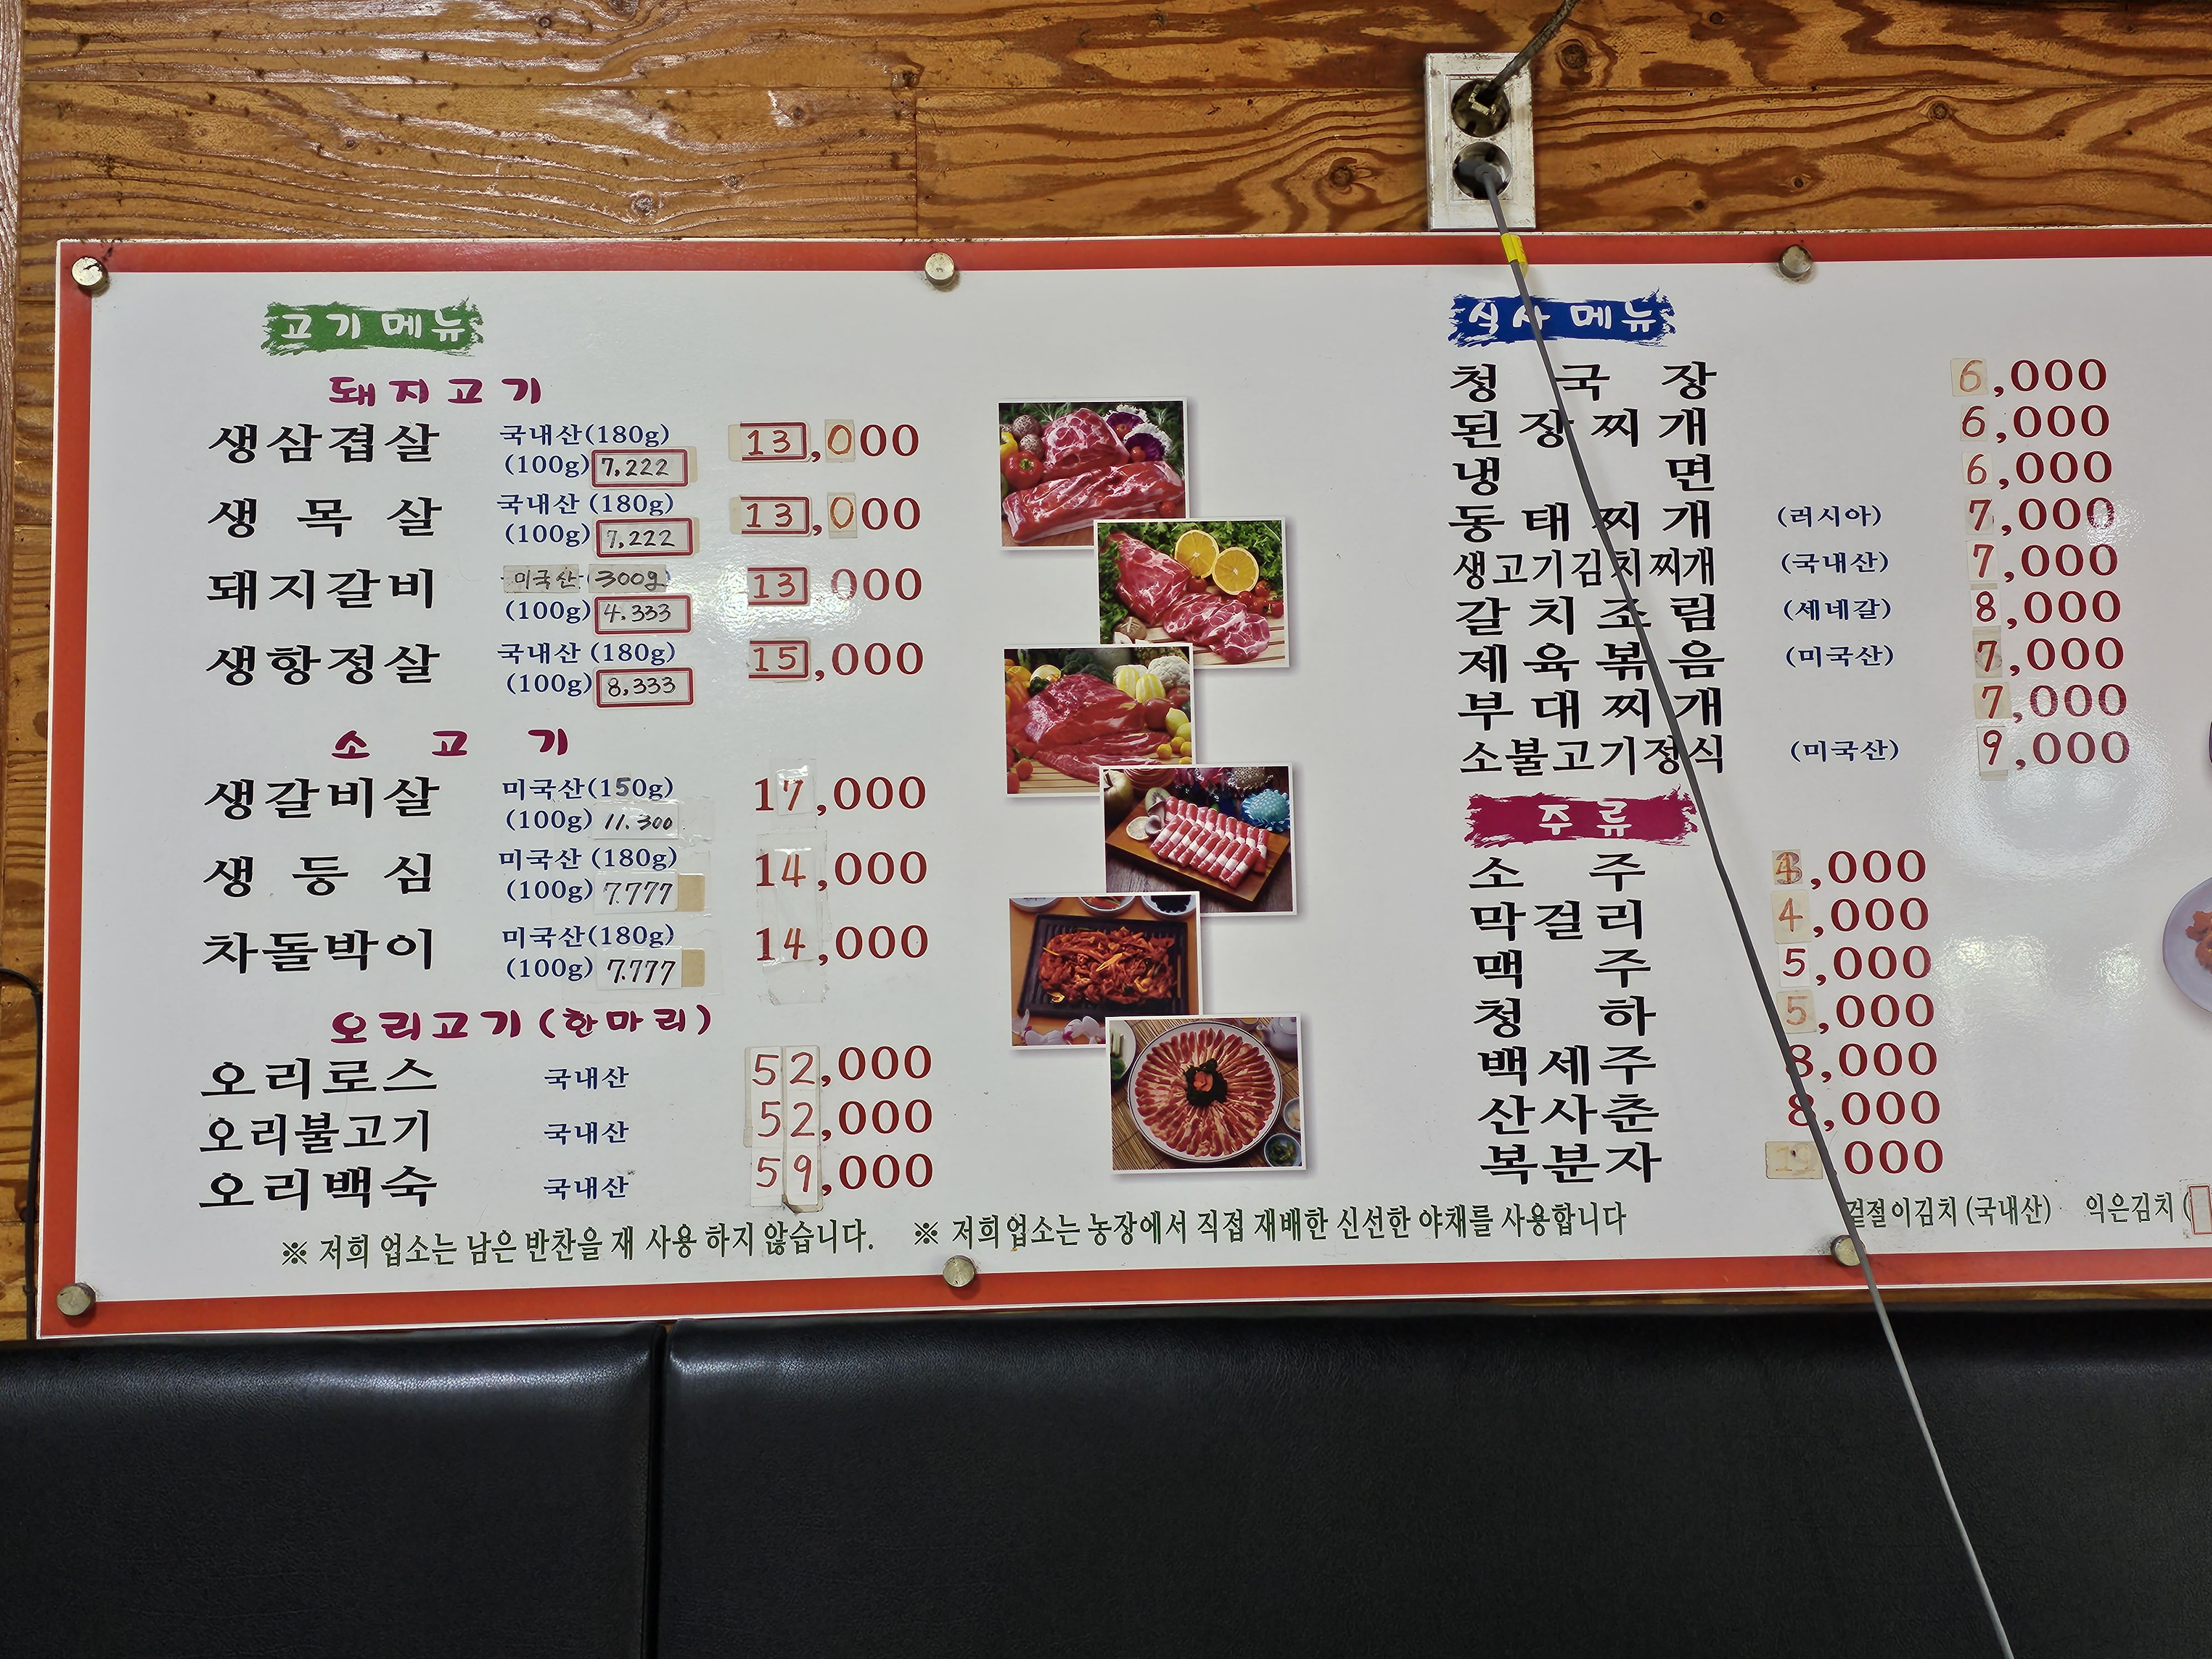 고기 메뉴
돼지고기
생삼겹살 국내산(180g) 13,000
(100g) 7,222
생 목 살 국내산 (180g) 13,000
(100g) 7,222
돼지갈비 미국산 (300g) 13 000
(100g) 4.333
생항정살 국내산 (180g) 15,000
(100g) 8,333
소 고 기
생갈비살 미국산(150g) 17,000
(100g) 11.300
생 등 심 미국산 (180g) 14,000
(100g) 7.777
차돌박이 미국산(180g) 14,000
(100g) 7.777
오리고기 (한마리)
오리로스 국내산 52,000
오리불고기 국내산 52,000
오리백숙 국내산 59,000
식사 메뉴
청 국 장 6,000
된 장 찌 개 6,000
냉 면 6,000
동 태 찌 개 (러시아) 7,000
생고기김치찌개 (국내산) 7,000
갈 치 조 림 (세네갈) 8,000
제 육 볶 음 (미국산) 7,000
부 대 찌 개 7,000
소불고기정식 (미국산) 9,000
주 류
소 주 4,000
막걸리 4,000
맥 주 5,000
청 하 5,000
백세주 8,000
산사춘 8,000
복분자 000
※ 저희 업소는 남은 반찬을 재 사용 하지 않습니다. ※ 저희업소는 농장에서 직접 재배한 신선한 야채를 사용합니다 겉절이김치 (국내산) 익은김치 (